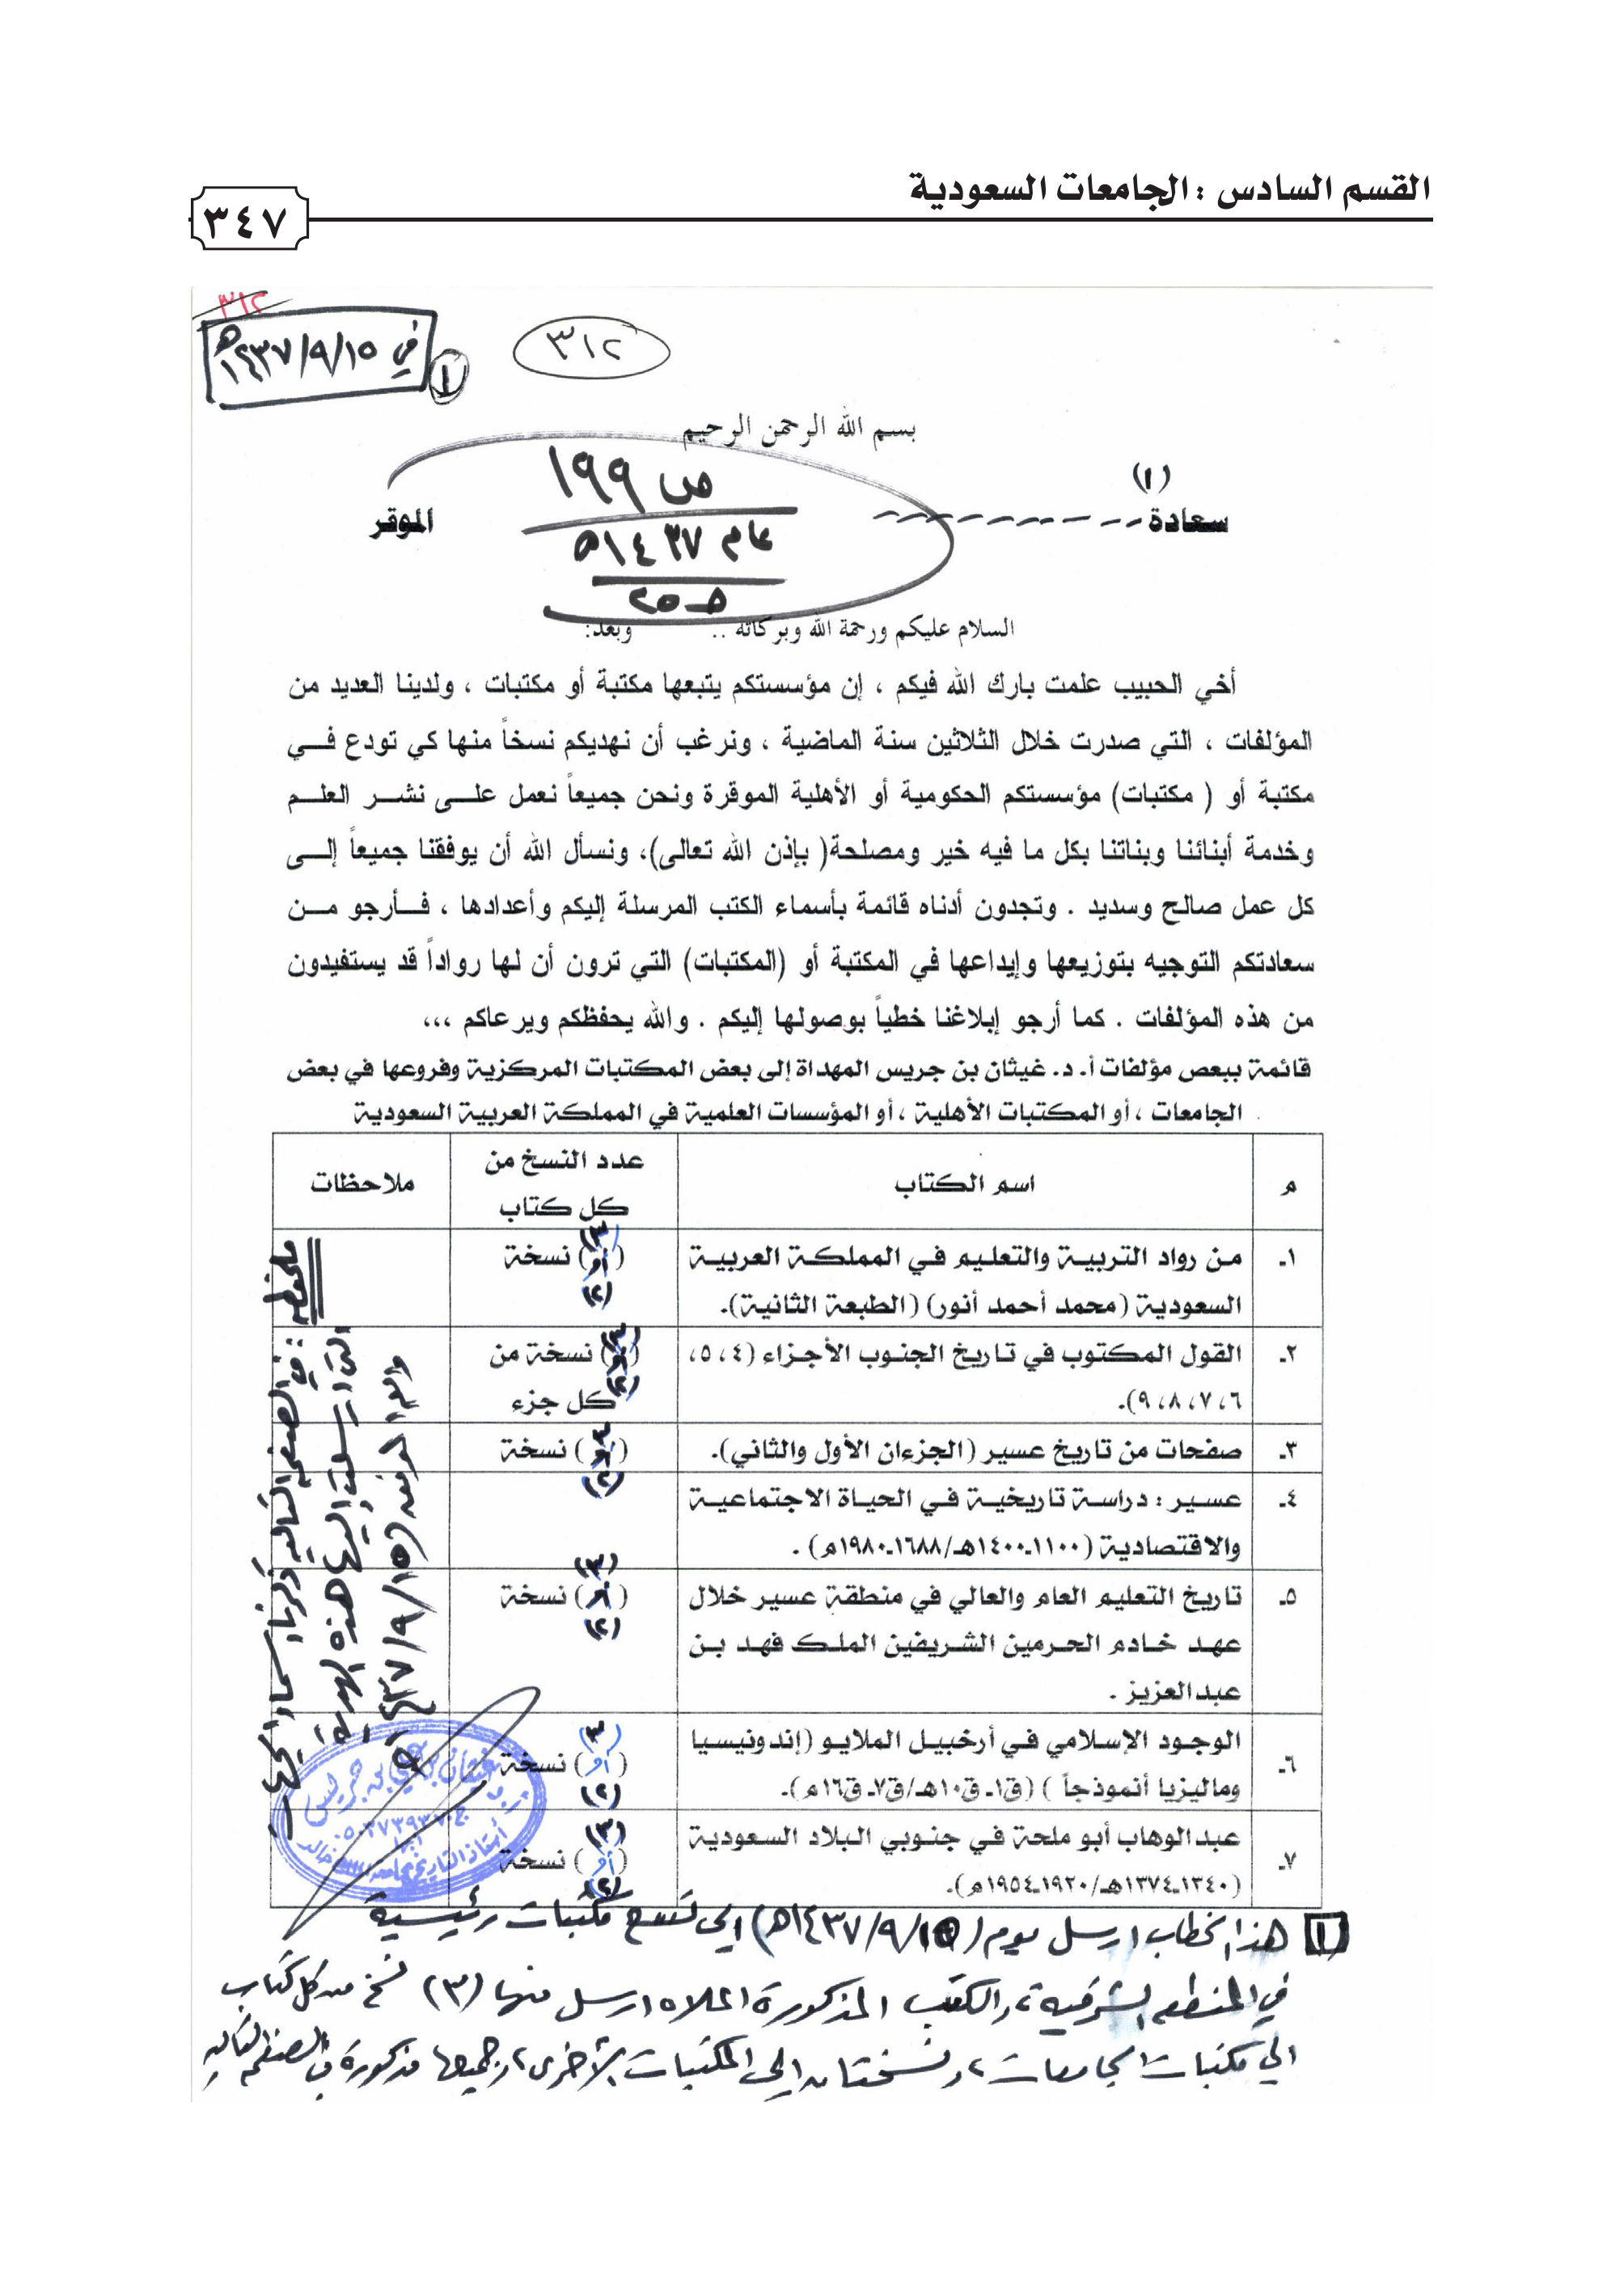 القسم السادس : الجامعات السعودية
٣٤٧
٣١٢
في ١٤٣٧/٩/١٥هـ
١
٣١٢
بسم الله الرحمن الرحيم
ص ١٩٩
عام ١٤٣٧هـ
(١)
سعادة
الموقر
السلام عليكم ورحمة الله وبركاته .. وبعد:
أخي الحبيب علمت بارك الله فيكم ، إن مؤسستكم يتبعها مكتبة أو مكتبات ، ولدينا العديد من
المؤلفات ، التي صدرت خلال الثلاثين سنة الماضية ، ونرغب أن نهديكم نسخاً منها كي تودع في
مكتبة أو ( مكتبات) مؤسستكم الحكومية أو الأهلية الموقرة ونحن جميعاً نعمل على نشر العلم
وخدمة أبنائنا وبناتنا بكل ما فيه خير ومصلحة( بإذن الله تعالى)، ونسأل الله أن يوفقنا جميعاً إلى
كل عمل صالح وسديد . وتجدون أدناه قائمة بأسماء الكتب المرسلة إليكم وأعدادها ، فأرجو من
سعادتكم التوجيه بتوزيعها وإيداعها في المكتبة أو (المكتبات) التي ترون أن لها رواداً قد يستفيدون
من هذه المؤلفات . كما أرجو إبلاغنا خطياً بوصولها إليكم . والله يحفظكم ويرعاكم ،،،
قائمة ببعض مؤلفات أ. د. غيثان بن جريس المهداة إلى بعض المكتبات المركزية وفروعها في بعض
الجامعات ، أو المكتبات الأهلية ، أو المؤسسات العلمية في المملكة العربية السعودية
م
اسم الكتاب
عدد النسخ من
كل كتاب
ملاحظات
١ـ
من رواد التربية والتعليم في المملكة العربية
السعودية (محمد أحمد أنور) (الطبعة الثانية).
(٣)
( أو ) نسخة
(٢)
٢ـ
القول المكتوب في تاريخ الجنوب الأجزاء (٤ ،٥،
٦ ،٧ ،٨ ،٩).
(٣)
نسخة من
(٢)
كل جزء
٣ـ
صفحات من تاريخ عسير (الجزءان الأول والثاني).
(٣)
نسخة
(٢)
٤ـ
عسير : دراسة تاريخية في الحياة الاجتماعية
والاقتصادية (١١٠٠ـ١٤٠٠هـ/١٦٨٨ـ١٩٨٠م) .
٥ـ
تاريخ التعليم العام والعالي في منطقة عسير خلال
عهد خادم الحرمين الشريفين الملك فهد بن
عبدالعزيز .
(٣)
نسخة
(٢)
٦ـ
الوجود الإسلامي في أرخبيل الملايو (إندونيسيا
وماليزيا أنموذجاً ) (ق١ـ ق١٠هـ/ق٧ـ ق١٦م).
(٣)
( أو ) نسخة
(٢)
٧ـ
عبدالوهاب أبو ملحة في جنوبي البلاد السعودية
(١٣٤٠ـ١٣٧٤هـ/١٩٢٠ـ١٩٥٤م).
(٣)
( أو ) نسخة
(٢)
ملحوظة : في الصفحة التالية ذكرنا أسماء الجهات
التي أرسلت إليها هذه الهدية
١٤٣٧/٩/١٥هـ
أ.د. غيثان بن علي بن جريس
أستاذ التاريخ بجامعة الملك خالد
١ هذا الخطاب ارسل يوم (١٤٣٧/٩/١٥هـ) إلى تسع مكتبات رئيسية
في المنطقة الشرقية، والكتب المذكورة اعلاه ارسل منها (٣) نسخ من كل كتاب
إلى مكتبات الجامعات، ونسختان إلى المكتبات الأخرى، وجميعها مذكورة في الصفحة التالية